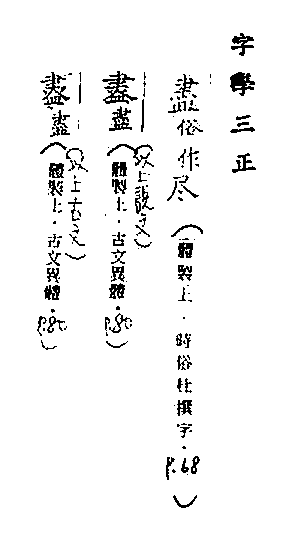 字學三正
盡俗作尽(體製上.時俗杜撰字.P.68)
(以上說文)
(體製上.古文異體.P.80)
(以上古文)
(體製上.古文異體.P.80)